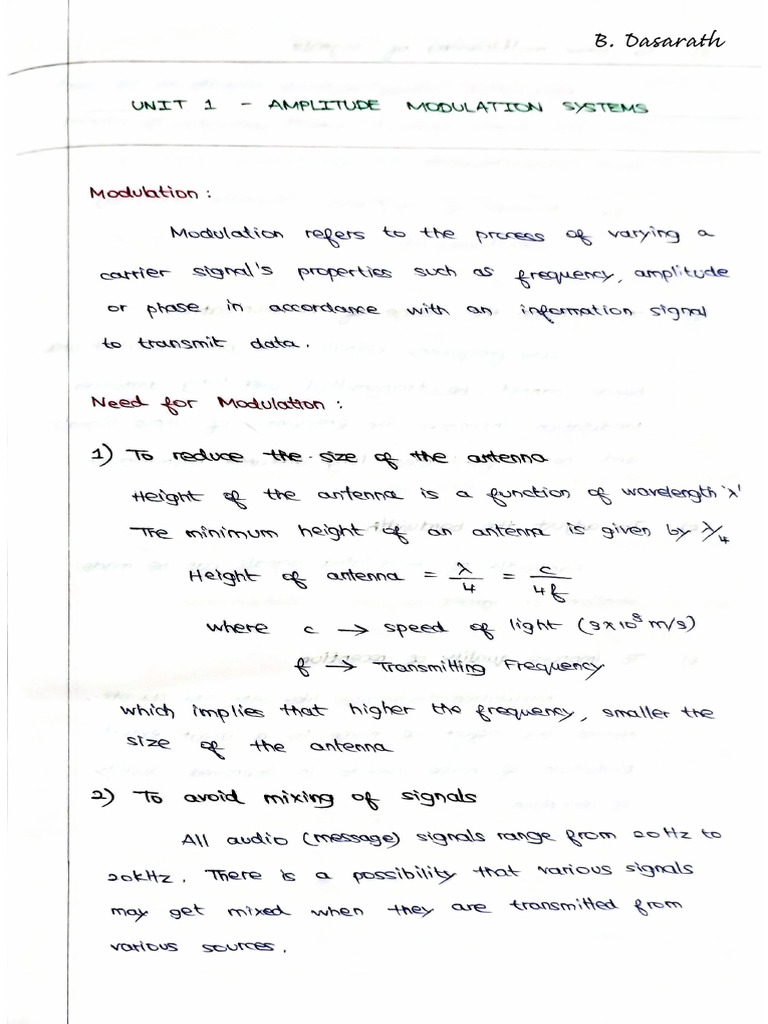 B. Dasarath
UNIT 1 - AMPLITUDE MODULATION SYSTEMS
Modulation :
Modulation refers to the process of varying a
carrier signal's properties such as frequency, amplitude
or phase in accordance with an information signal
to transmit data.
Need for Modulation :
1) To reduce the size of the antenna
Height of the antenna is a function of wavelength 'λ'
The minimum height of an antenna is given by λ/4
Height of antenna = λ/4 = c/4f
where c → speed of light (3×10⁸ m/s)
f → Transmitting Frequency
which implies that higher the frequency, smaller the
size of the antenna
2) To avoid mixing of signals
All audio (message) signals range from 20Hz to
20kHz. There is a possibility that various signals
may get mixed when they are transmitted from
various sources.